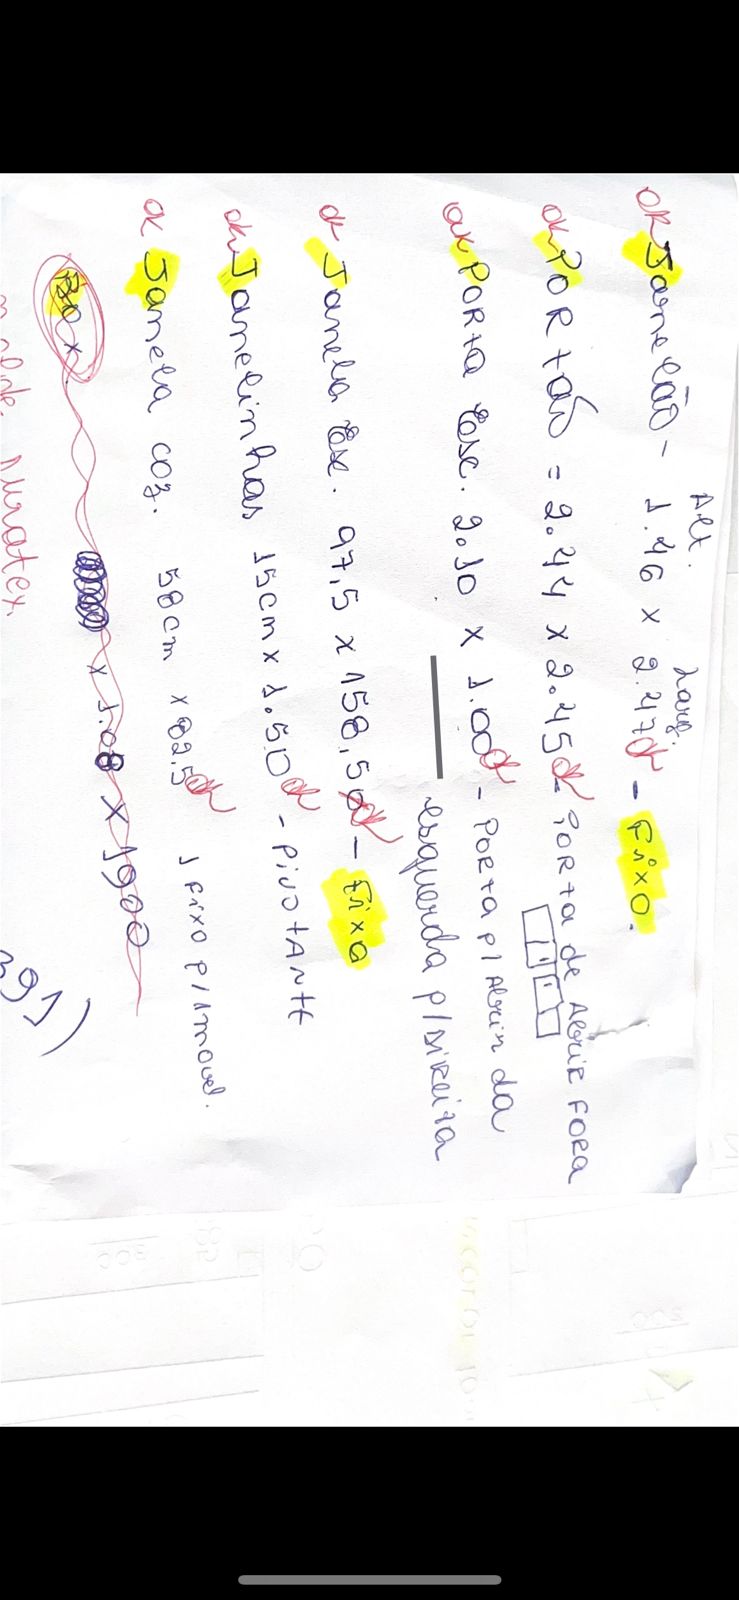 Alt. Larg.
ok Janelão - 1.46 x 2.47 ok - Fixo.
ok PORtão = 2.44 x 2.45 ok - PORTA de Abrir FORA
ok PORta Esc. 2.10 x 1.00 ok - PORTA p/ Abrir da
esquerda p/ direita
ok Janela Esc. 97,5 x 158,5 ok - Fixa
ok Janelinhas 15cm x 1.50 ok - PivotANte
ok Janela coz. 58cm x 82.5 ok 1 Fixo p/ 1 movel.
Box x 1.08 x 1900
Duratex.